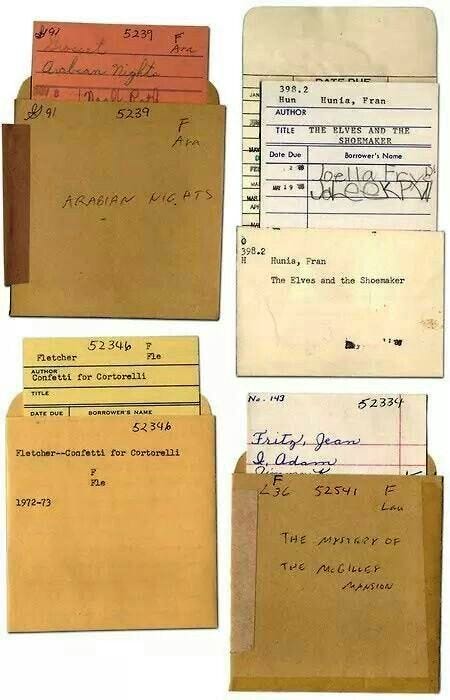 91 5239 F
Ara
Arabian Nights
91 5239
F
Ara
ARABIAN NIGHTS
DATE DUE
JAN
FEB
MAR
APR
398.2
Hun Hunia, Fran
AUTHOR
TITLE THE ELVES AND THE
SHOEMAKER
Date Due Borrower's Name
MAY 19
398.2
H Hunia, Fran
The Elves and the Shoemaker
52346 F
Fletcher Fle
AUTHOR
Confetti for Cortorelli
TITLE
DATE DUE BORROWER'S NAME
52346
Fletcher--Confetti for Cortorelli
F
Fle
1972-73
No. 143 52334
Fritz, Jean
I, Adam
F
L36 52541 F
Lau
THE MYSTERY OF
THE McGILLEY
MANSION